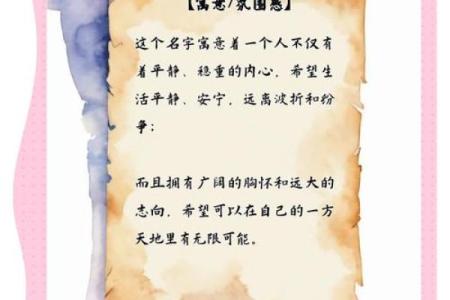 【寓意/氛围感】
这个名字寓意着一个人不仅有
着平静、稳重的内心，希望生
活平静、安宁，远离波折和纷
争；
而且拥有广阔的胸怀和远大的
志向，希望可以在自己的一方
天地里有无限可能。